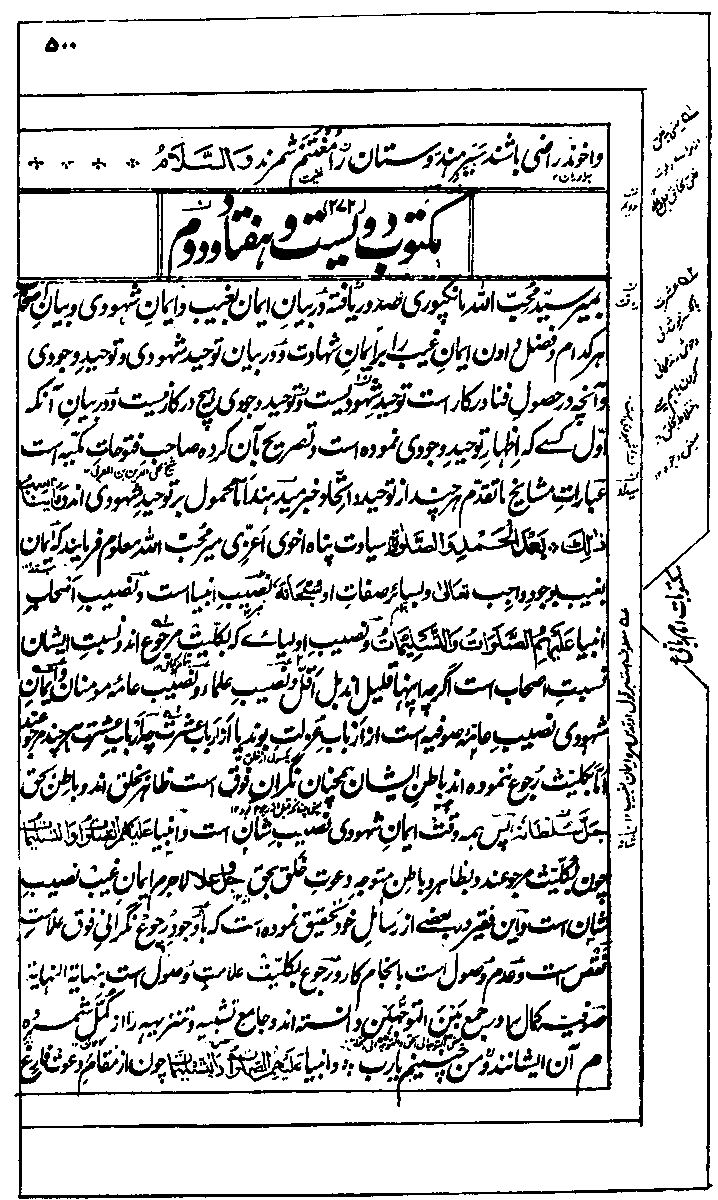 ۵۰۰
واخوند راضی باشند سیر هندوستان را مغتنم شمرند والسلام
مکتوب دویست و هفتاد و دوم
(۲۷۲)
بمیر سید محب الله مانکپوری صدور یافته در بیان ایمان بغیب و ایمان شهودی و بیان
هر کدام و فضل دادن ایمان غیب را بر ایمان شهادت و در بیان توحید شهودی و توحید وجودی
و آنچه در حصول فنا درکار است توحید شهودیست و توحید وجودی هیچ درکار نیست و در بیان آنکه
اول کسے که اظهار توحید وجودی نموده است و تصریح بآن کرده صاحب فتوحات مکیه است
عبارات مشایخ ما تقدم هر چند از توحید و اتحاد خبر میدهند اما محمول بر توحید شهودی اند
ذلک بعد الحمد والصلوة سیادت پناه اخوی اعزی میر محب الله معلوم فرمایند که ایمان
بغیب بوجود واجب تعالی و بسائر صفات او سبحانه نصیب انبیا است و نصیب اصحاب
انبیا علیهم الصلوات والتسلیمات و نصیب اولیائے که بکلیت مرجوع اند و نسبت ایشان
نسبت اصحاب است اگرچه اینها قلیل اند بل اقل و نصیب علماء و نصیب عامه مومنان و ایمان
شهودی نصیب عامه صوفیه است از ارباب عزلت بوند یا از ارباب عشرت چه ارباب عشرت هر چند مرجوعند
اما بکلیت رجوع ننموده اند باطن ایشان همچنان نگران فوق است ظاهر بخلق اند و باطن بحق
جل سلطانه پس همه وقت ایمان شهودی نصیب شان است و انبیا علیهم الصلوات والتسلیمات
چون بکلیت مرجوعند و بظاهر و باطن متوجه دعوت خلق بحق جل و علا لاجرم ایمان غیب نصیب
شان است و این فقیر در بعضے از رسائل خود تحقیق نموده است که با وجود رجوع نگرانی فوق علامت
نقص است و عدم وصول است بانجام کار و رجوع بکلیت علامت وصول است بنهایة النهایة
صوفیه کمال را در جمع بین التوجهین دانسته اند و جامع تشبیه و تنزیه را از کمل شمرده
ع آن ایشانند و من چنینم یارب و انبیا علیهم الصلوات والتسلیمات چون از مقام دعوت فارغ
مکتوبات امام ربانی